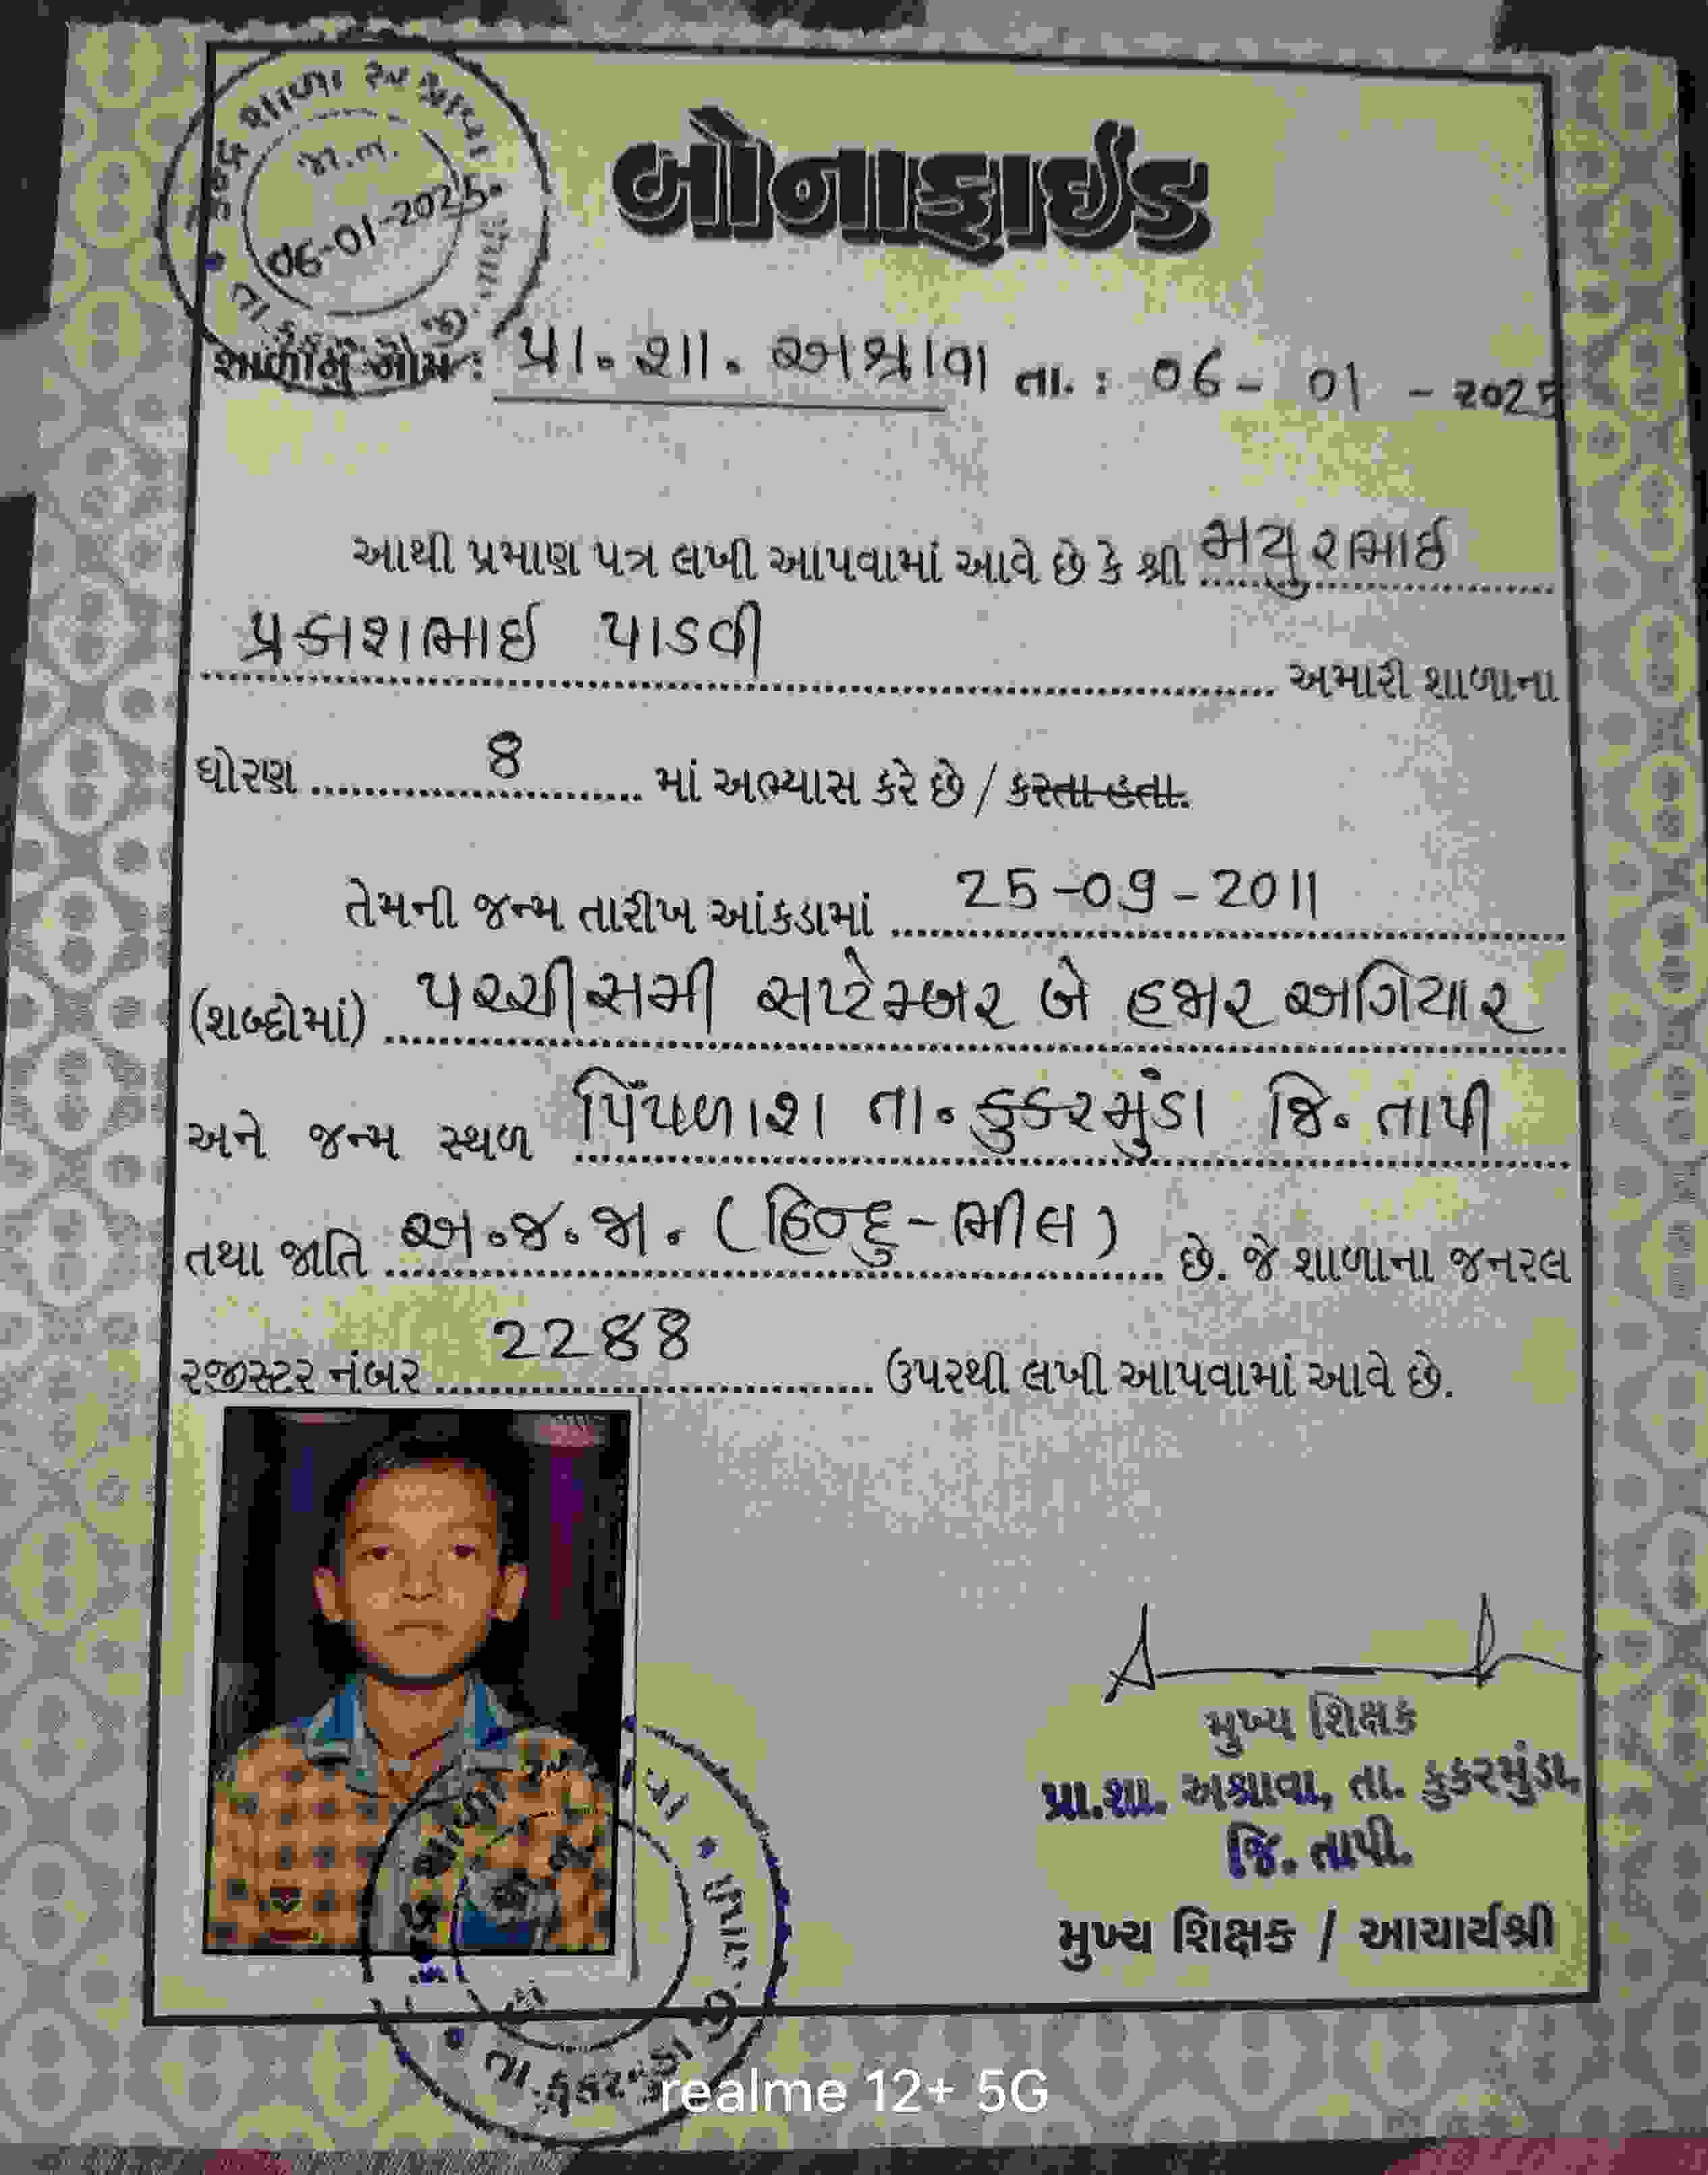 બોનાફાઈડ
જા.ન.
06-01-2025
શાળાનું નામ : પ્રા. શા. અશ્રાવા તા. : 06 - 01 - ૨૦25
આથી પ્રમાણ પત્ર લખી આપવામાં આવે છે કે શ્રી મયુરભાઈ
પ્રકાશભાઈ પાડવી અમારી શાળાના
ધોરણ 8 માં અભ્યાસ કરે છે / કરતા હતા.
તેમની જન્મ તારીખ આંકડામાં 25-09-2011
(શબ્દોમાં) પચ્ચીસમી સપ્ટેમ્બર બે હજાર અગિયાર
અને જન્મ સ્થળ પિંપળાશ તા. કુકરમુંડા જિ. તાપી
તથા જાતિ અ.જ.જા. (હિન્દુ-ભીલ) છે. જે શાળાના જનરલ
રજીસ્ટર નંબર 2288 ઉપરથી લખી આપવામાં આવે છે.
મુખ્ય શિક્ષક
પ્રા.શા. અશ્રાવા, તા. કુકરમુંડા,
જિ. તાપી.
મુખ્ય શિક્ષક / આચાર્યશ્રી
realme 12+ 5G